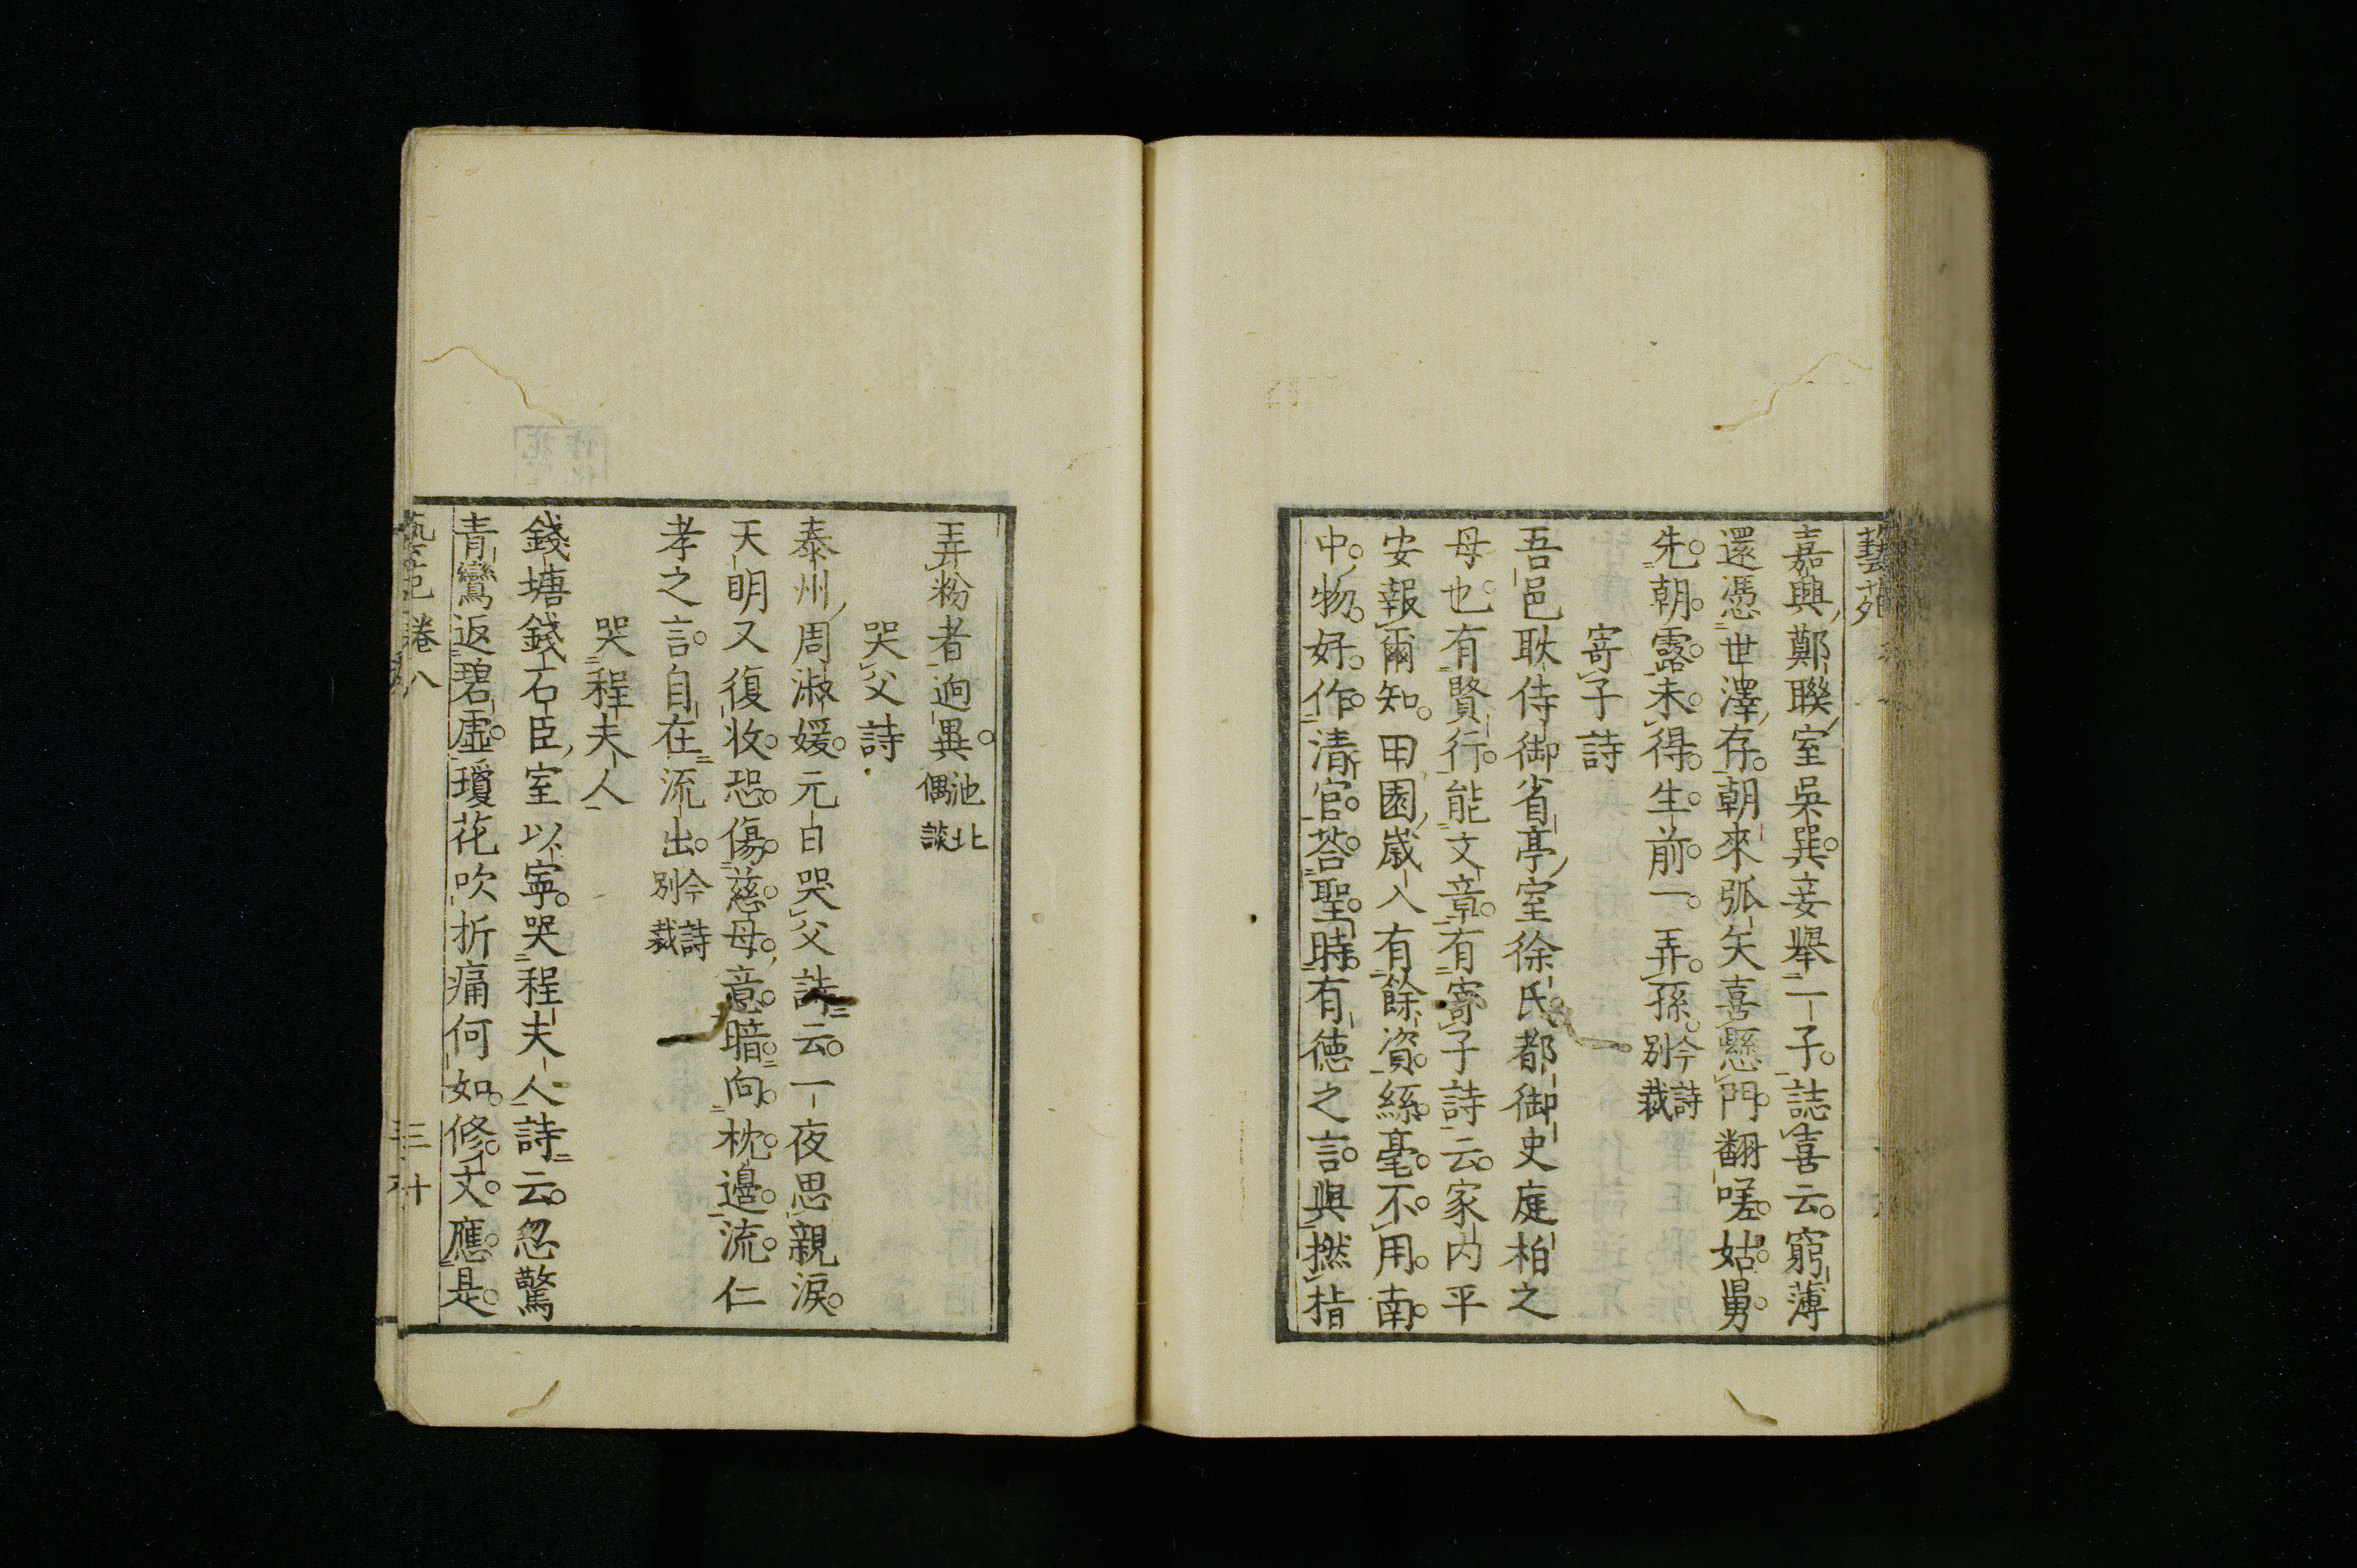 嘉興鄭聯室吳巽妾舉一子誌喜云窮薄
還憑世澤存朝來弧矢喜懸門翻嗟姑舅
先朝露未得生前一弄孫今詩別裁
寄子詩
吾邑耿侍御省亭室徐氏都御史庭柏之
母也有賢行能文章有寄子詩云家內平
安報爾知田園歲入有餘資絲毫不用南
中物好作清官荅聖時有德之言與撚指
弄粉者逈異池北偶談
哭父詩
泰州周淑媛元日哭父詩云一夜思親淚
天明又復收恐傷慈母意暗向枕邊流仁
孝之言自在流出今詩別裁
哭程夫人
錢塘錢石臣室以寧哭程夫人詩云忽驚
青鸞返碧虛瓊花吹折痛何如修文應是
卷八